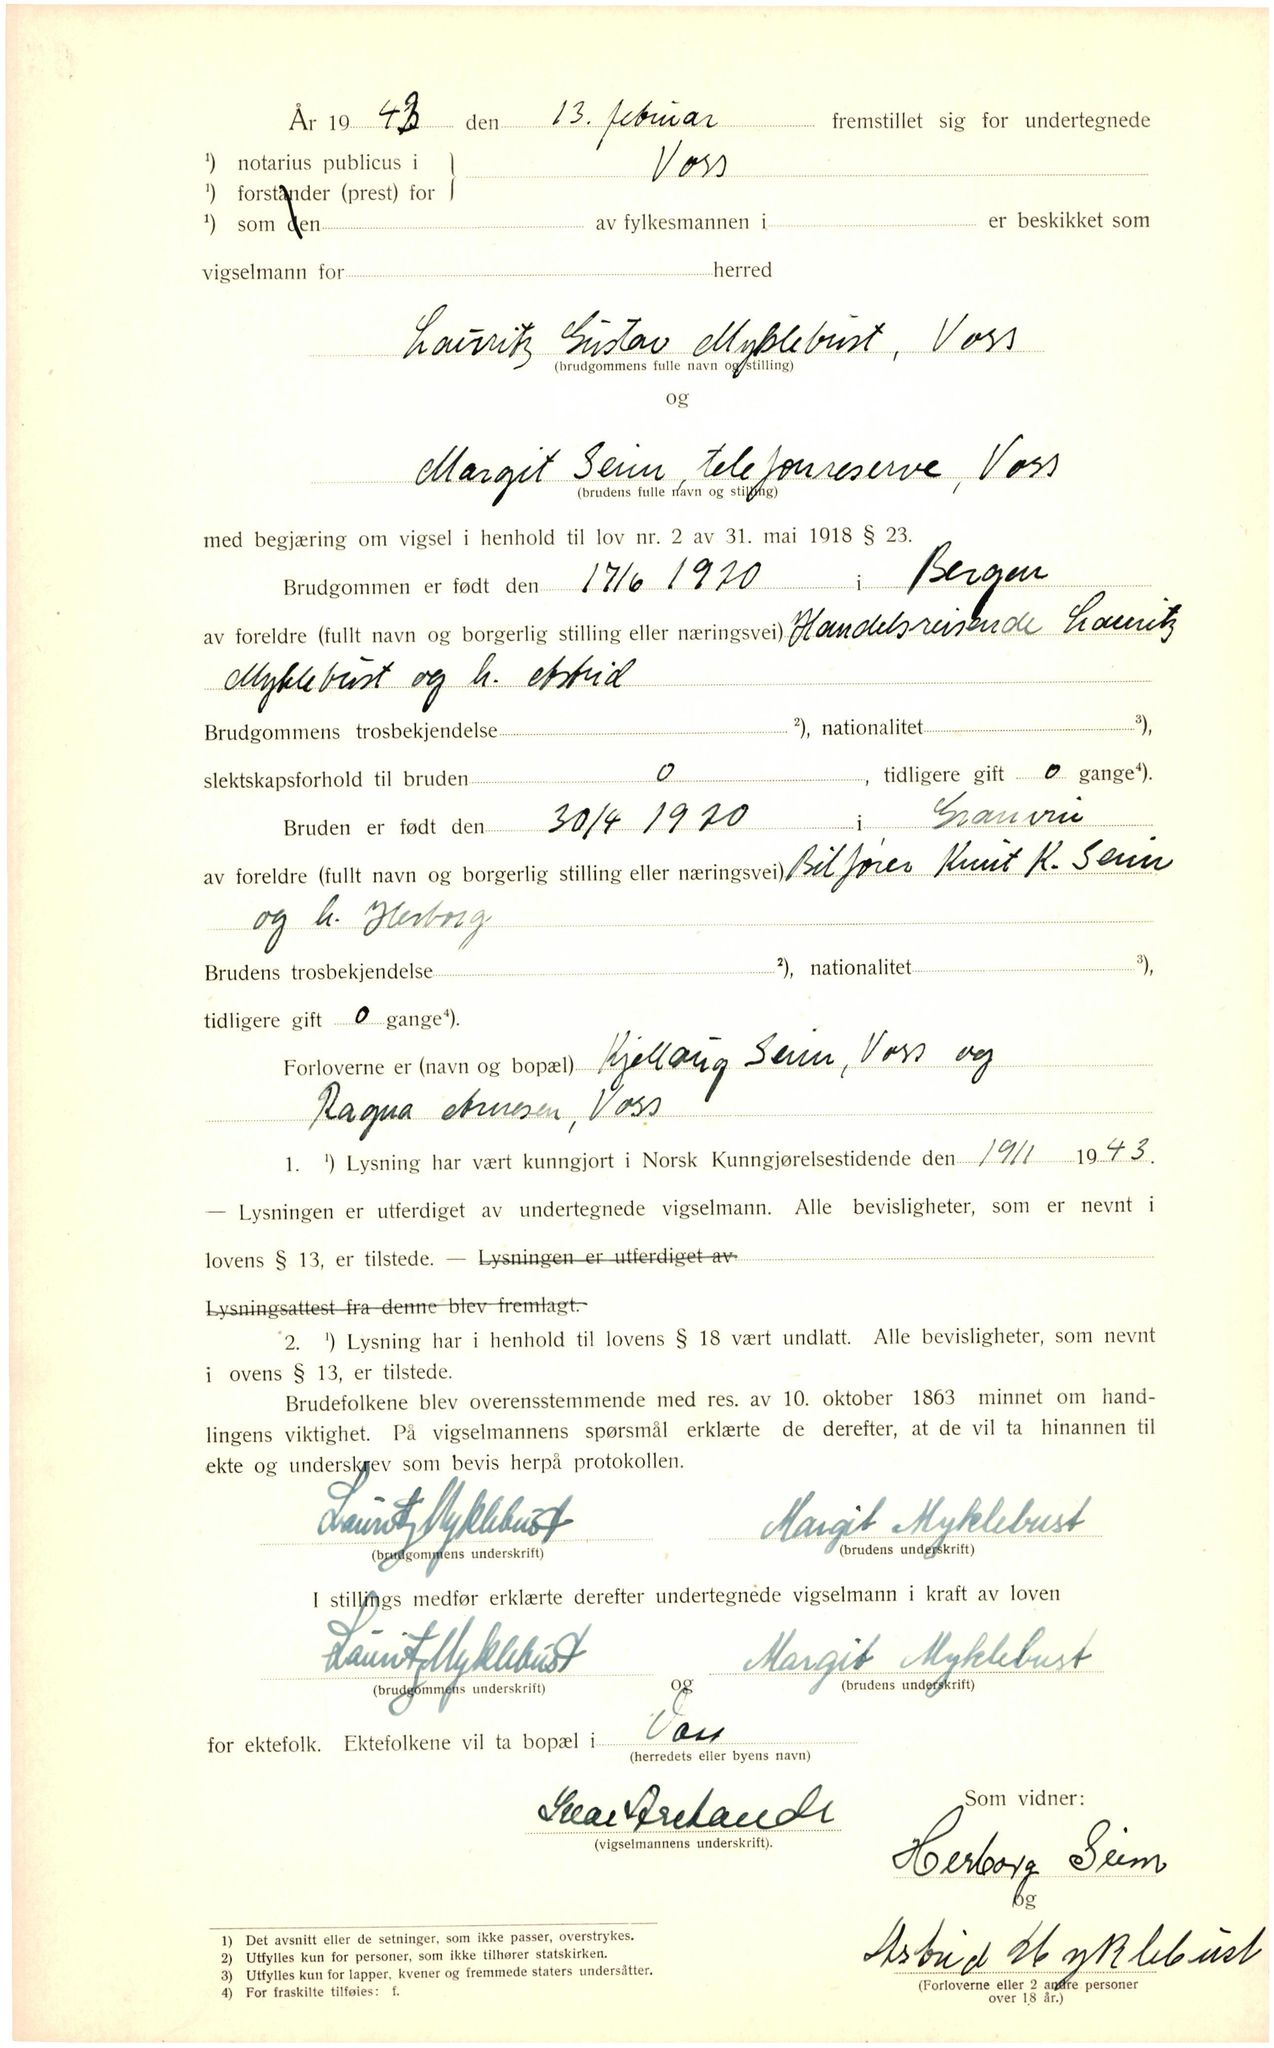 År 19 43 den 13. februar fremstillet sig for undertegnede
¹) notarius publicus i
Voss
¹) forstander (prest) for
¹) som den av fylkesmannen i er beskikket som
vigselmann for herred
Lauritz Gustav Myklebust, Voss
(brudgommens fulle navn og stilling)
og
Margit Seim, telefonreserve, Voss
(brudens fulle navn og stilling)
med begjæring om vigsel i henhold til lov nr. 2 av 31. mai 1918 § 23.
Brudgommen er født den 17/6 1920 i Bergen
av foreldre (fullt navn og borgerlig stilling eller næringsvei) Handelsreisende Lauritz
Myklebust og h. Astrid
Brudgommens trosbekjendelse ²), nationalitet ³),
slektskapsforhold til bruden 0, tidligere gift 0 gange⁴).
Bruden er født den 30/4 1920 i Granvin
av foreldre (fullt navn og borgerlig stilling eller næringsvei) Bilfører Knut K. Seim
og h. Herborg
Brudens trosbekjendelse ²), nationalitet ³),
tidligere gift 0 gange⁴).
Forloverne er (navn og bopæl) Kjellaug Seim, Voss og
Ragna Arnesen, Voss
1. ¹) Lysning har vært kunngjort i Norsk Kunngjørelsestidende den 19/1 1943.
— Lysningen er utferdiget av undertegnede vigselmann. Alle bevisligheter, som er nevnt i
lovens § 13, er tilstede. — Lysningen er utferdiget av
Lysningsattest fra denne blev fremlagt.
2. ¹) Lysning har i henhold til lovens § 18 vært undlatt. Alle bevisligheter, som nevnt
i ovens § 13, er tilstede.
Brudefolkene blev overensstemmende med res. av 10. oktober 1863 minnet om hand-
lingens viktighet. På vigselmannens spørsmål erklærte de derefter, at de vil ta hinannen til
ekte og underskrev som bevis herpå protokollen.
Lauritz Myklebust Margit Myklebust
(brudgommens underskrift) (brudens underskrift)
I stillings medfør erklærte derefter undertegnede vigselmann i kraft av loven
Lauritz Myklebust Margit Myklebust
(brudgommens underskrift) og (brudens underskrift)
for ektefolk. Ektefolkene vil ta bopæl i Voss
(herredets eller byens navn)
Som vidner:
(vigselmannens underskrift).
Herborg Seim
og
Astrid Myklebust
(Forloverne eller 2 andre personer
over 18 år.)
1) Det avsnitt eller de setninger, som ikke passer, overstrykes.
2) Utfylles kun for personer, som ikke tilhører statskirken.
3) Utfylles kun for lapper, kvener og fremmede staters undersåtter.
4) For fraskilte tilføies: f.